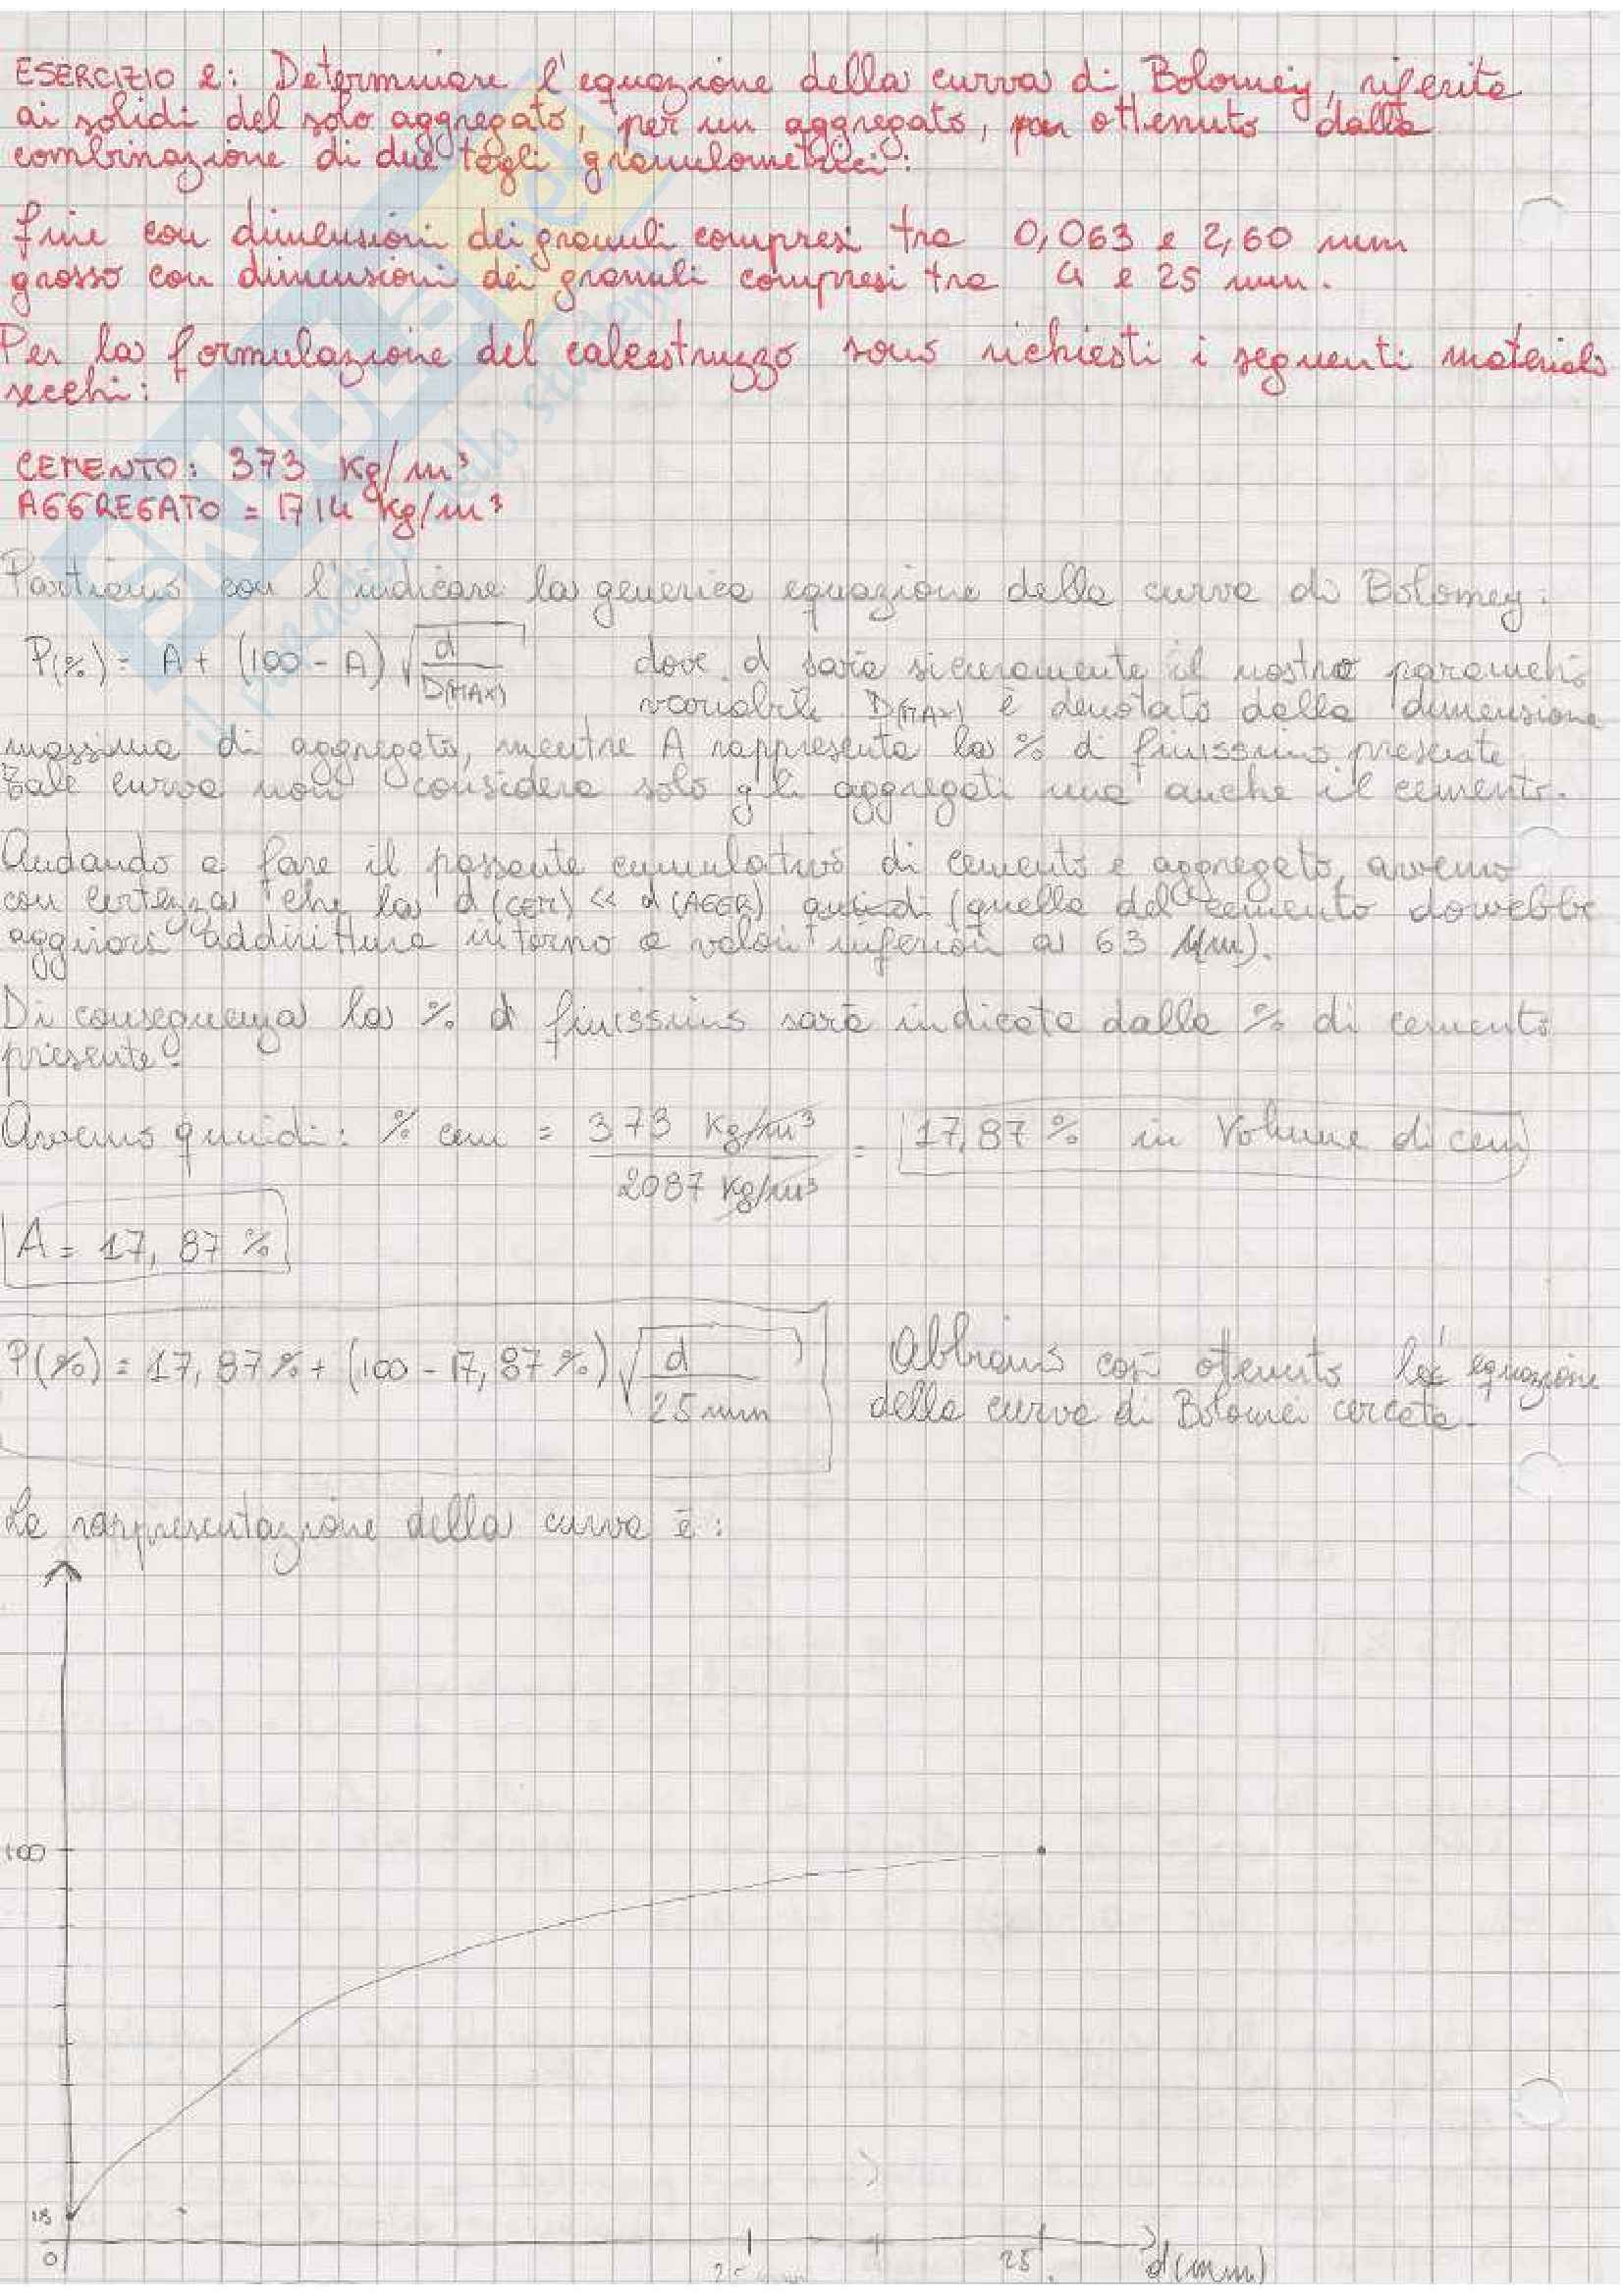 ESERCIZIO 2: Determinare l'equazione della curva di Bolomey, riferita
ai solidi del solo aggregato, per un aggregato, ottenuto dalla
combinazione di due tagli granulometrici:
fine con dimensioni dei granuli compresi tra 0,063 e 2,60 mm
grosso con dimensioni dei granuli compresi tra 4 e 25 mm.
Per la formulazione del calcestruzzo sono richiesti i seguenti materiali
secchi:
CEMENTO: 373 Kg/m³
AGGREGATO = 1714 Kg/m³
Partiamo con l'indicare la generica equazione della curva di Bolomey:
P(%) = A + (100 - A) √(d / D(MAX)) dove d sarà sicuramente il nostro parametro
variabile. D(MAX) è denotato dalla dimensione
massima di aggregato, mentre A rappresenta la % di finissimo presente
tale curva non considera solo gli aggregati ma anche il cemento.
Andando a fare il passante cumulativo di cemento e aggregato, avremo
con certezza che la d(CEM) << d(AGGR) quindi (quella del cemento dovrebbe
aggirarsi addirittura intorno a valori inferiori a 63 μm).
Di conseguenza la % di finissimo sarà indicata dalla % di cemento
presente.
Avremo quindi: % cem = 373 Kg/m³ / 2087 Kg/m³ = 17,87 % in Volume di cem
A = 17,87 %
P(%) = 17,87% + (100 - 17,87%) √(d / 25 mm) Abbiamo così ottenuto l'equazione
della curva di Bolomei cercata.
La rappresentazione della curva è:
100
18
0
25
d(mm)
SKUOLA.net
il paradiso dello studente